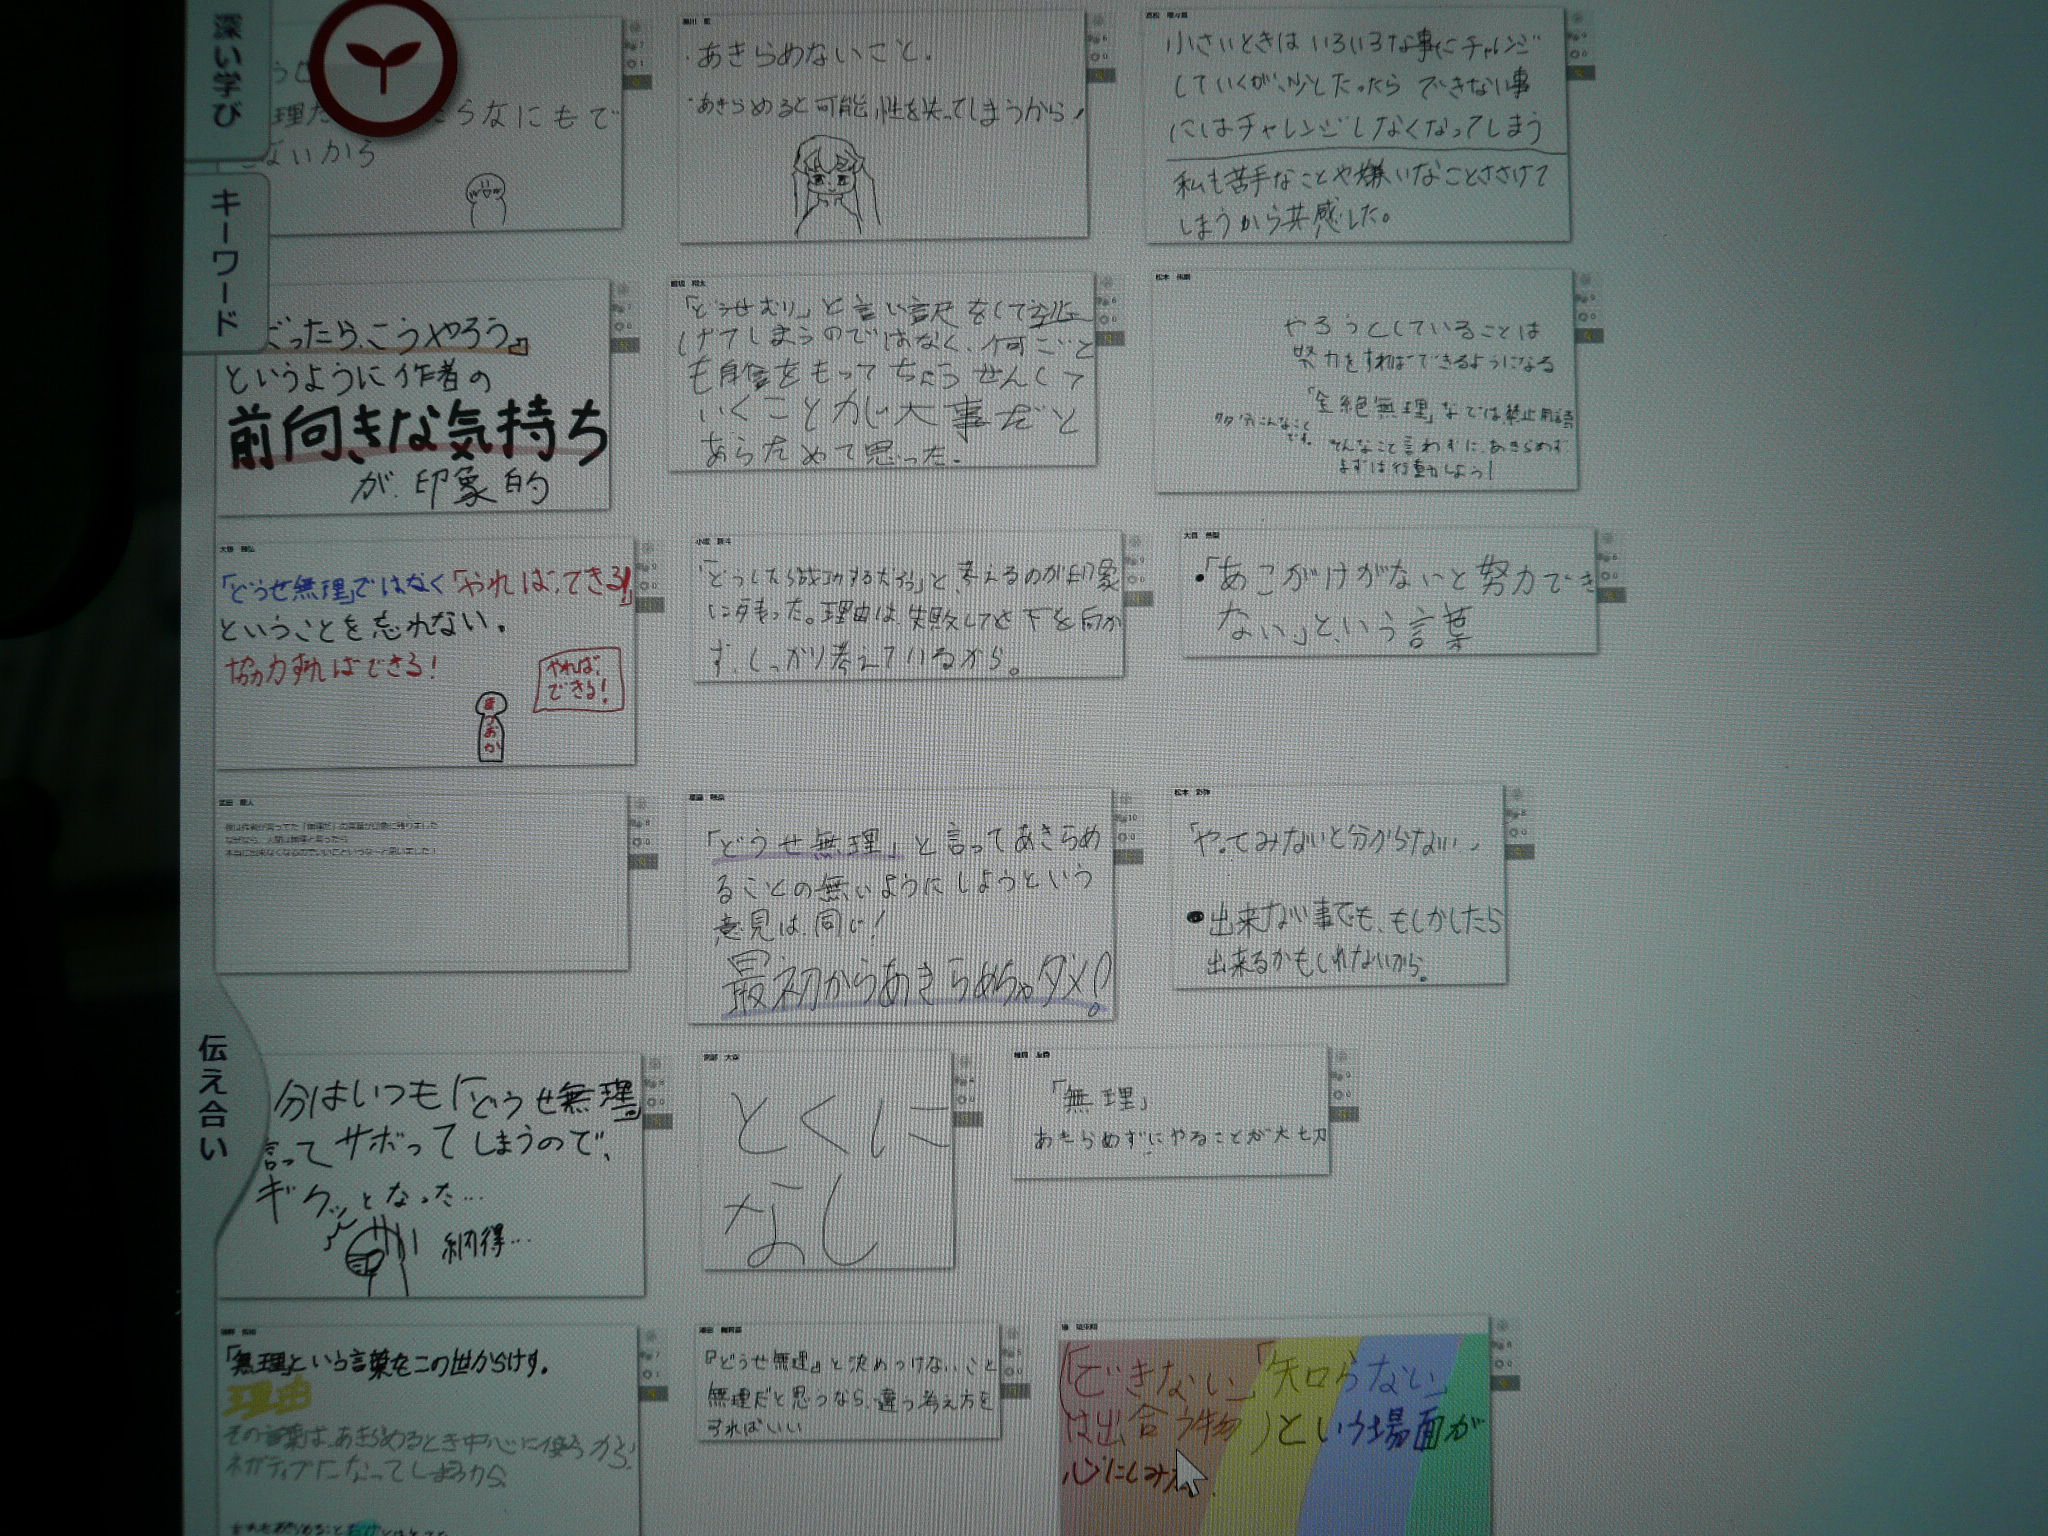 深い学び
キーワード
伝え合い
らなにもで
ないから
・あきらめないこと.
・あきらめると可能性を失ってしまうから
小さいときはいろいろな事にチャレンジ
していくが、少したったらできない事
にはチャレンジしなくなってしまう
私も苦手なことや嫌いなことささけて
しまうから共感した。
だったら、こうやろう』
というように作者の
前向きな気持ち
が、印象的
「どうせむり」と言い訳をして
げてしまうのではなく、何ごと
も自信をもってちょうせんして
いくことが大事だと
あらためて思った.
やろうとしていることは
努力をすればできるようになる
「全絶無理」などは禁止用語
多分こんなこと
です。
そんなこと言わずに、あきらめず
まずは行動しよう!
「どうせ無理」ではなく「やれば、できる!」
ということを忘れない。
協力すればできる!
やれば、
できる!
まつおか
「どうしたら成功するだろう」と、考えるのが印象
に残った。理由は、失敗しても下を向か
ず、しっかり考えているから。
•「あこがけがないと努力でき
ない」という言葉
「どうせ無理」と言ってあきらめ
ることの無いようにしようという
意見は、同じ!
最初からあきらめちゃダメ!
松本 彩弥
「やってみないと分からない」
●出来ない事でも、もしかしたら
出来るかもしれないから。
分はいつも「どうせ無理」
言ってサボってしまうので、
ギクッとなった…
納得…
とくに
なし
「無理」
あきらめずにやることが大切
「無理」という言葉をこの世からけす。
理由
その言葉は、あきらめるとき中心に使うから!
ネガティブになってしまうから
『どうせ無理』と決めつけないこと
無理だと思うなら、違う考え方を
すればいい
「できない」「知らない」
は出合う物)という場面が
心にしみた